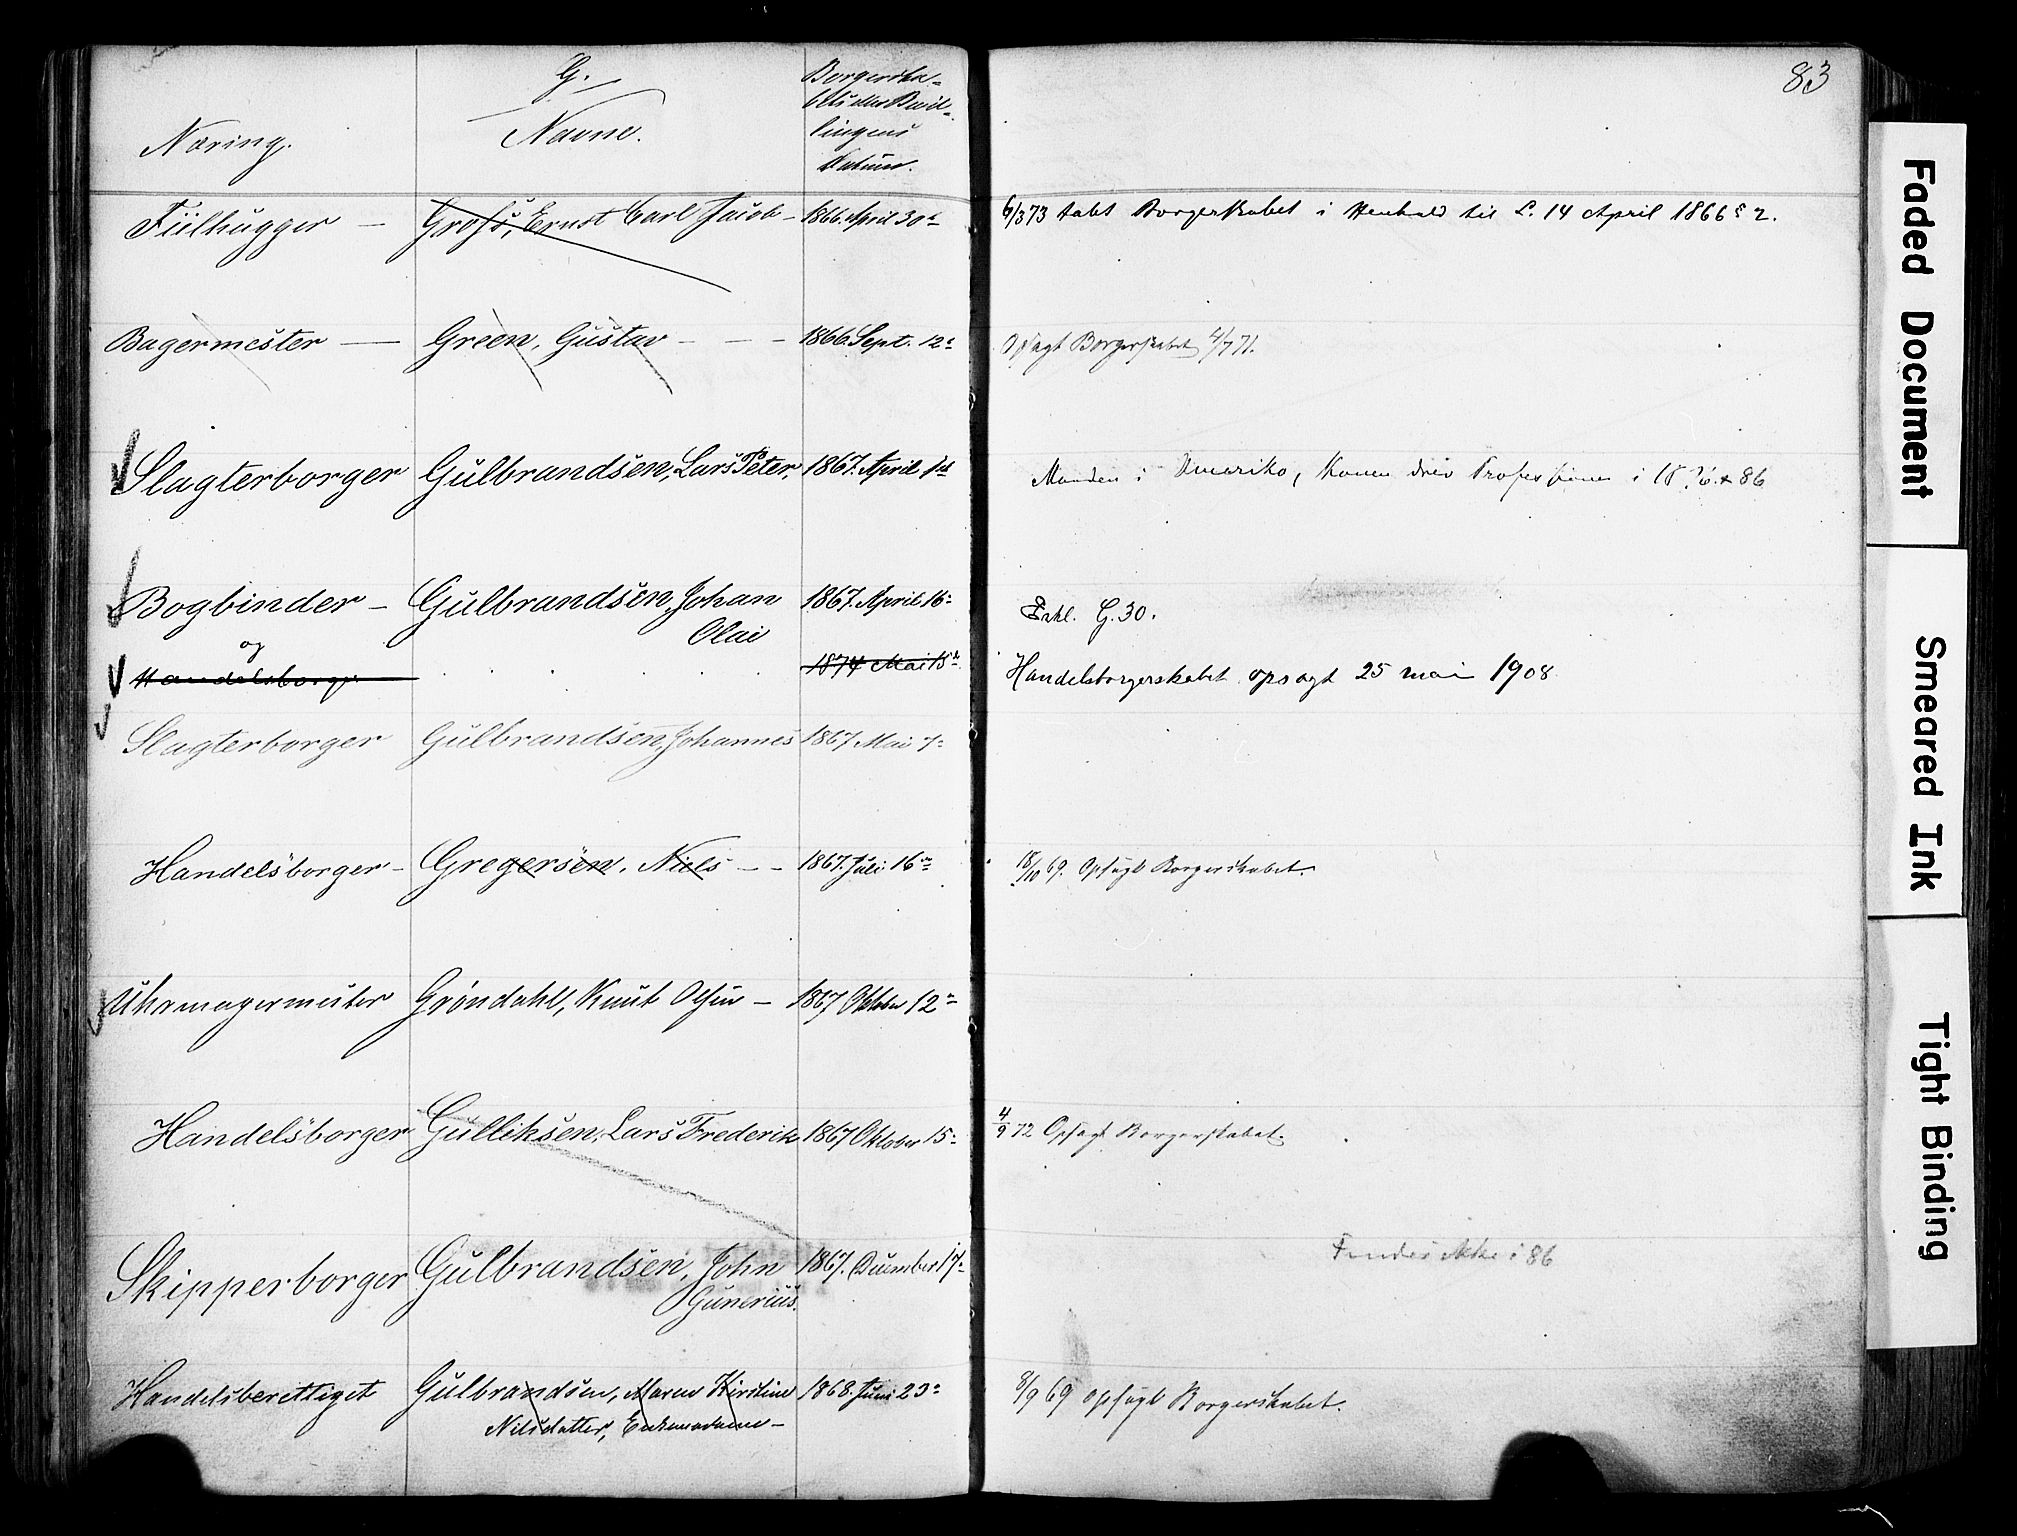 G.
Næring.
Navne.
Borgerska-
bets eller Bevil-
lingens
Datum.
83
Fiilhugger — Gross, Ernst Carl Jacob — 1866. April 30te
6/3 73 tabt Borgerskabet i Henhold til L. 14 April 1866 § 2.
Bagermester — Green, Gustav - - - 1866. Sept. 12te
Opsagt Borgerskabet 4/7 71.
Slagterborger Gulbrandsen, Lars Peter, 1867. April 1ste
Manden i Amerika, Konen drev Professionen i 86
Bogbinder — Gulbrandsen, Johan 1867. April 16te
Olai
G. 30.
og
Handelsborger 1874 Mai 15de
Handelsborgerskabet opsagt 25 mai 1908
Slagterborger Gulbrandsen, Johannes 1867 Mai 7de
Handelsborger - Gregersen, Niels - - 1867. Juli 16de
18/10 69. Opsagt Borgerskabet.
Uhrmagermester Grøndahl, Knut Olsen — 1867 Oktober 12te
Handelsborger Gulliksen, Lars Frederik 1867 Oktober 15de
4/9 72 Opsagt Borgerskabet.
Skipperborger Gulbrandsen, John 1867. December 17de
Gunerius.
Findes ikke i 86
Handelsberettiget Gulbrandsen, Maren Kirstine 1868. Juni 23de
Nilsdatter, Enkemadame —
8/9 69 opsagt Borgerskabet.
Faded Document
Smeared Ink
Tight Binding